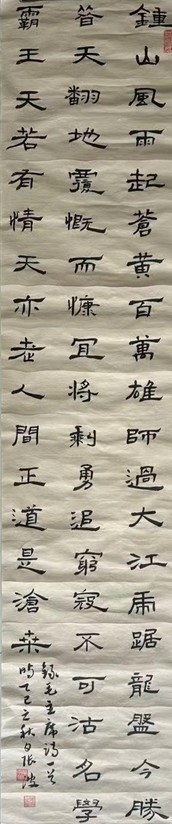 鍾山風雨起蒼黃百萬雄師過大江虎踞龍盤今勝
昔天翻地覆慨而慷宜將剩勇追窮寇不可沽名學
霸王天若有情天亦老人間正道是滄桑
錄毛主席詩一首
時乙巳立秋日張波